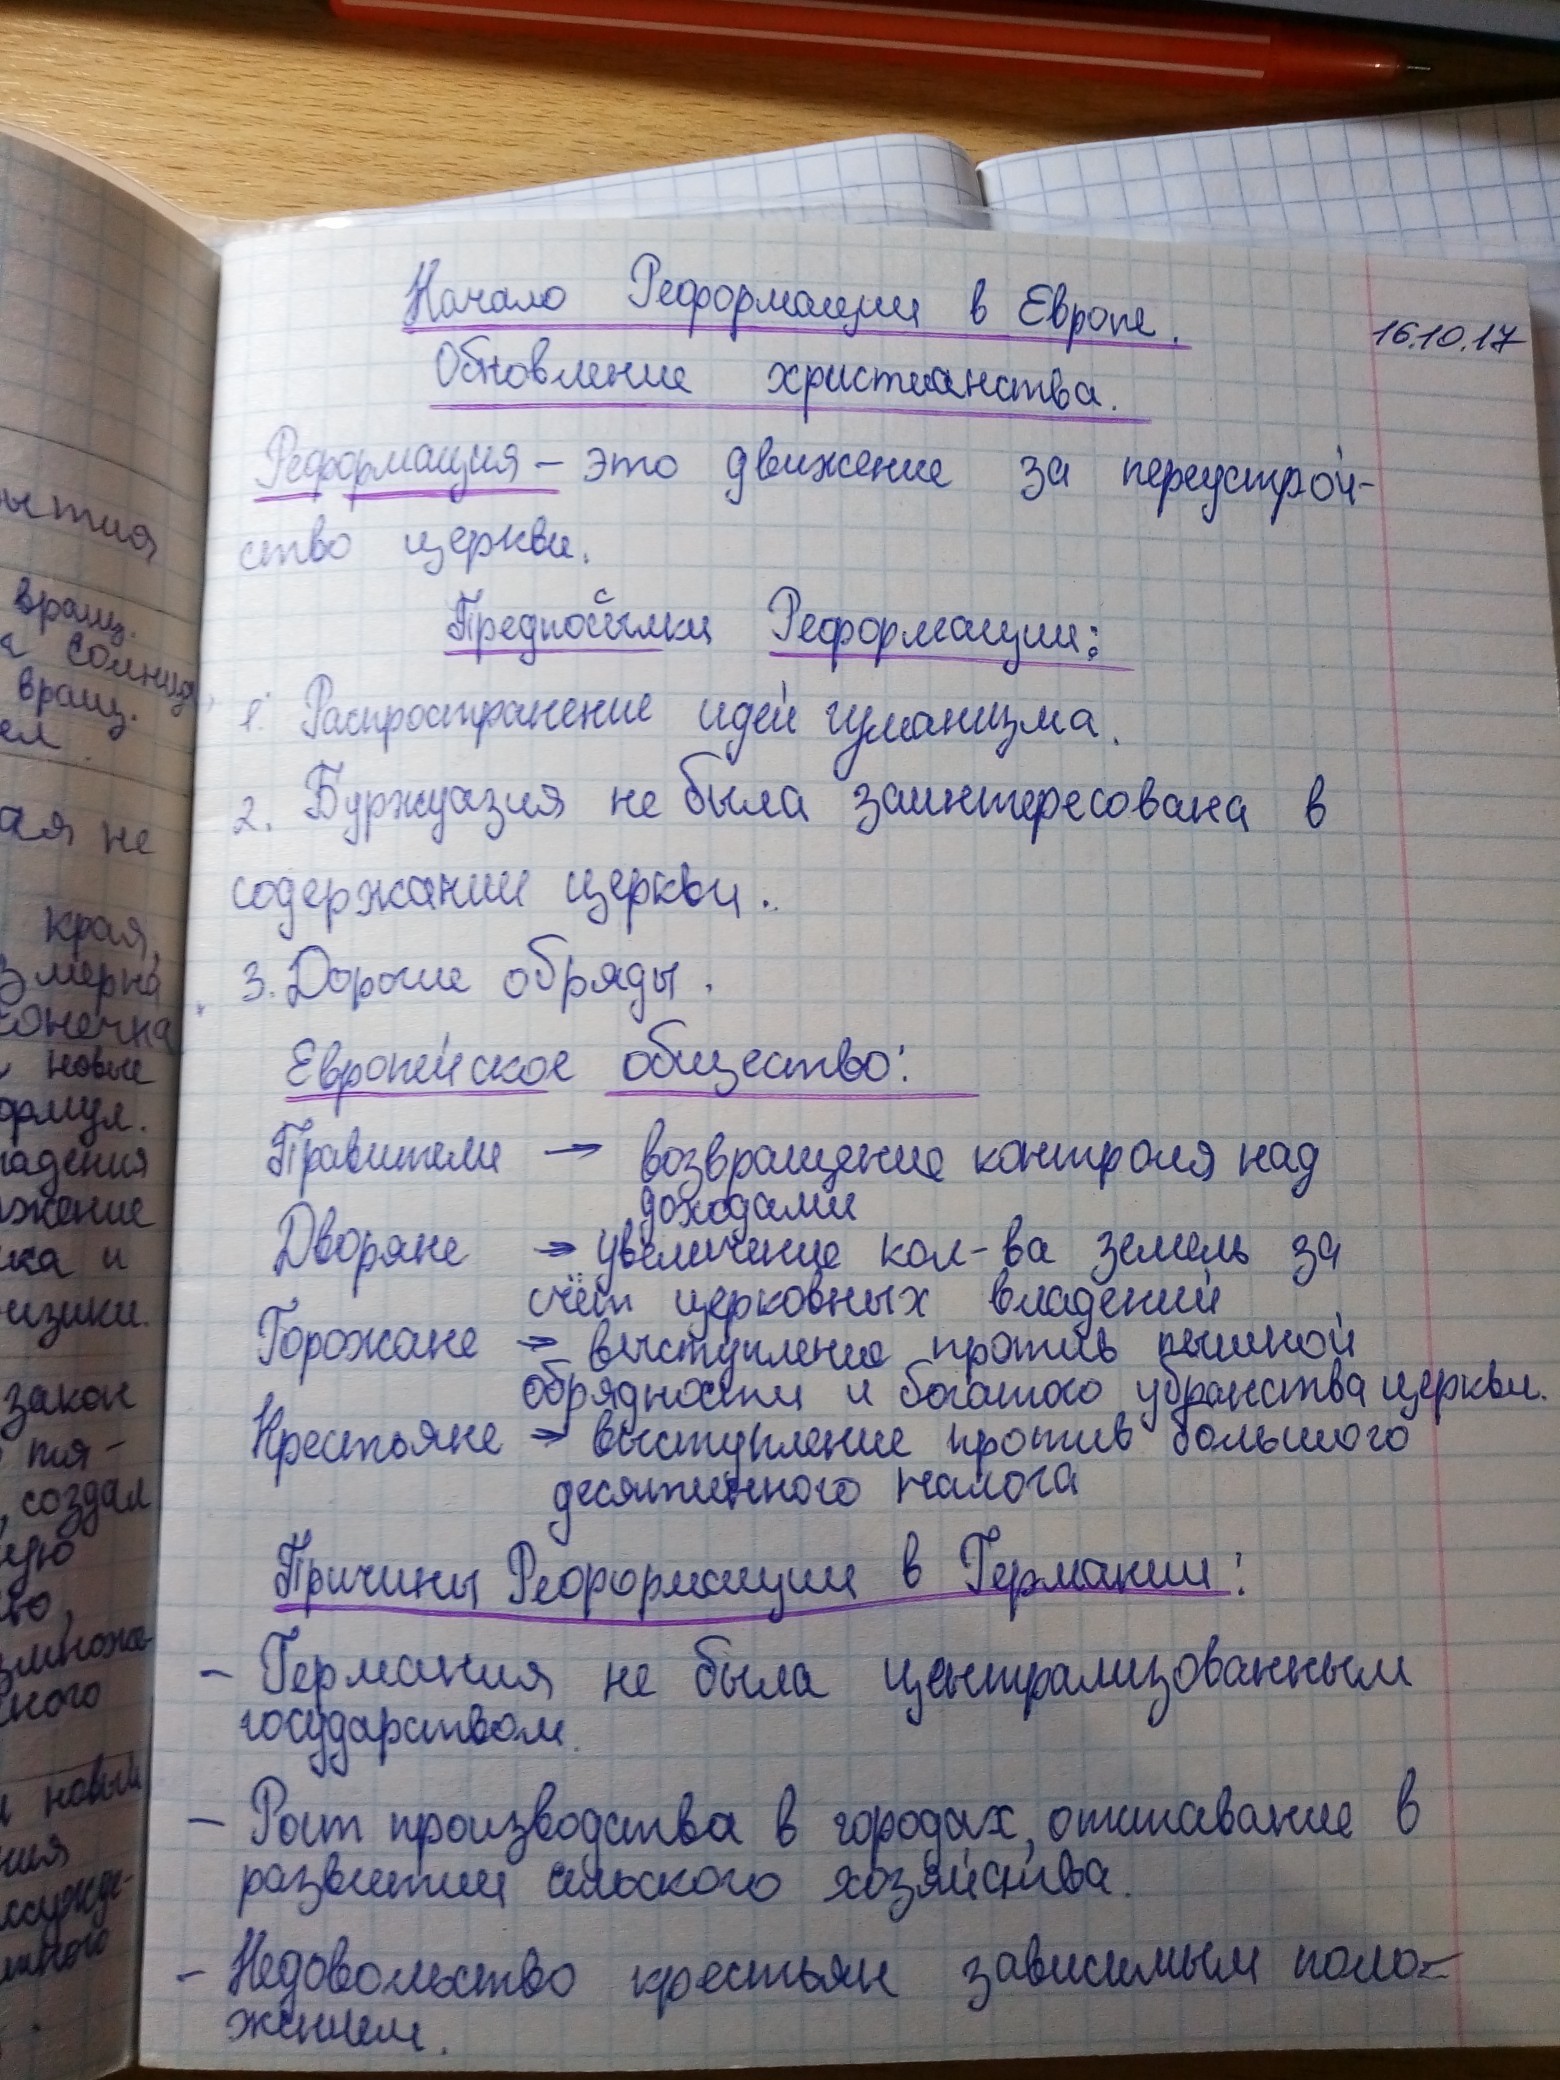 Начало Реформации в Европе.
16.10.17
Обновление христианства.
Реформация – это движение за переустрой-
ство церкви.
Предпосылки Реформации:
1. Распространение идей гуманизма.
2. Буржуазия не была заинтересована в
содержании церкви.
3. Дорогие обряды.
Европейское общество:
Правители → возвращение контроля над
доходами
Дворяне → увеличение кол-ва земель за
счёт церковных владений
Горожане → выступление против пышной
обрядности и богатого убранства церкви.
Крестьяне → выступление против большого
десятинного налога
Причины Реформации в Германии:
– Германия не была централизованным
государством.
– Рост производства в городах, отставание в
развитии сельского хозяйства.
– Недовольство крестьян зависимым поло-
жением.
вращ.
вращ.
не
края,
новые
и
закон
создал